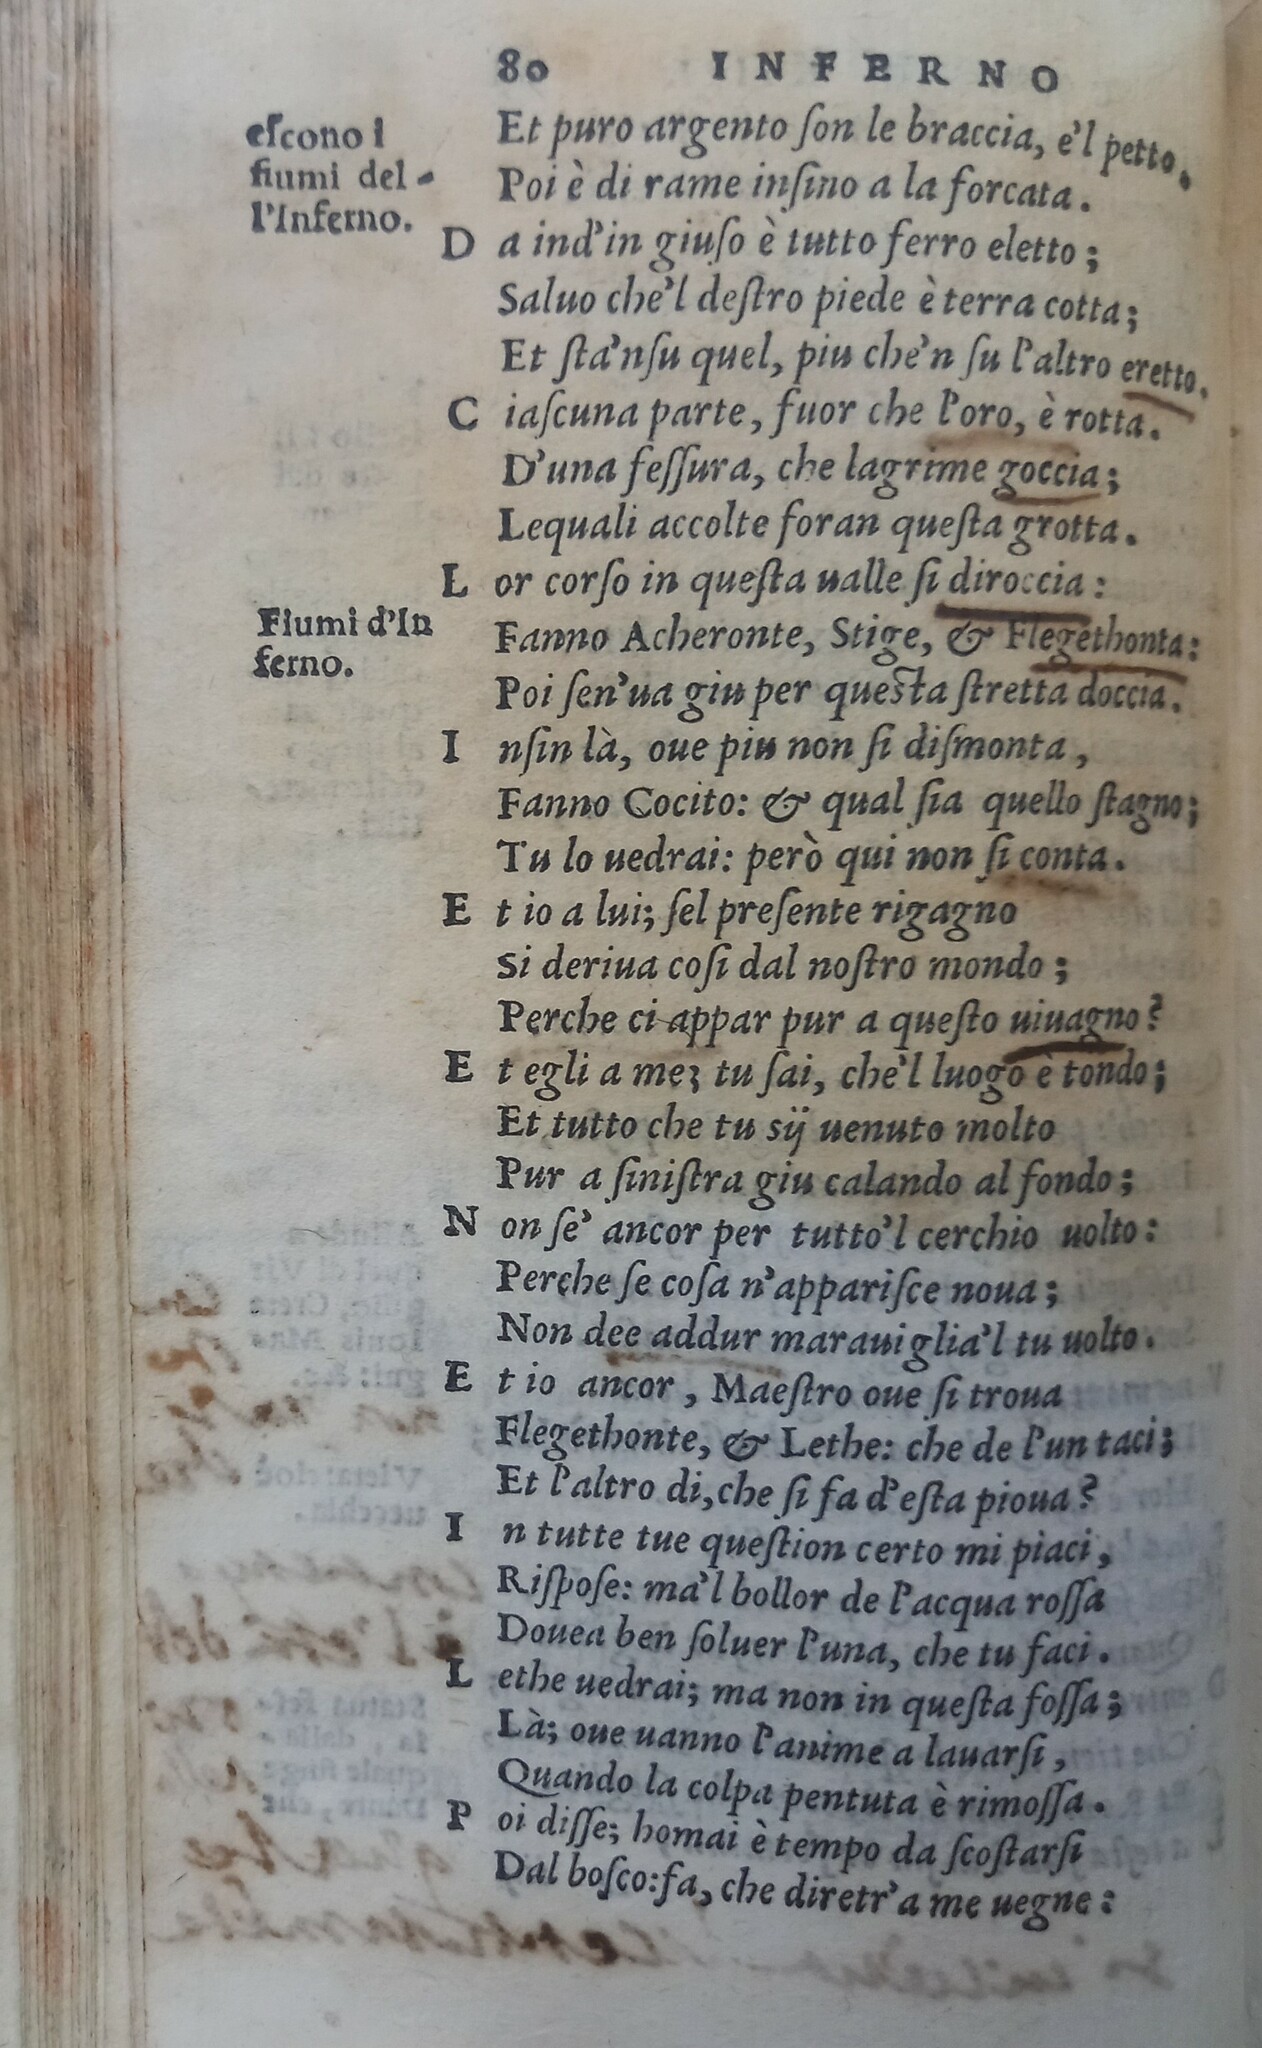 80 INFERNO
eſcono i
fiumi del-
l'Inferno.
Et puro argento ſon le braccia, e'l petto.
Poi è di rame inſino a la forcata.
D a ind'in giuſo è tutto ferro eletto;
Saluo che'l deſtro piede è terra cotta;
Et ſta'nſu quel, piu che'n ſu l'altro eretto.
C iaſcuna parte, fuor che l'oro, è rotta.
D'una feſſura, che lagrime goccia;
Lequali accolte foran queſta grotta.
L or corſo in queſta ualle ſi diroccia:
Fiumi d'In
ferno.
Fanno Acheronte, Stige, & Flegethonta:
Poi ſen'ua giu per queſta ſtretta doccia.
I nſin là, oue piu non ſi diſmonta,
Fanno Cocito: & qual ſia quello ſtagno;
Tu lo uedrai: però qui non ſi conta.
E t io a lui; ſel preſente rigagno
Si deriua coſi dal noſtro mondo;
Perche ci appar pur a queſto uiuagno?
E t egli a me; tu ſai, che'l luogo è tondo;
Et tutto che tu sij uenuto molto
Pur a ſiniſtra giu calando al fondo;
N on ſe' ancor per tutto'l cerchio uolto:
Perche ſe coſa n'appariſce noua;
Non dee addur marauiglia'l tu uolto.
E t io ancor, Maeſtro oue ſi troua
Flegethonte, & Lethe: che de l'un taci;
Et l'altro di, che ſi fa d'eſta pioua?
I n tutte tue queſtion certo mi piaci,
Riſpoſe: ma'l bollor de l'acqua roſſa
Douea ben ſoluer l'una, che tu faci.
L ethe uedrai; ma non in queſta foſſa;
Là; oue uanno l'anime a lauarſi,
Quando la colpa pentuta è rimoſſa.
P oi diſſe; homai è tempo da ſcoſtarſi
Dal boſco: fa, che diretr'a me uegne: